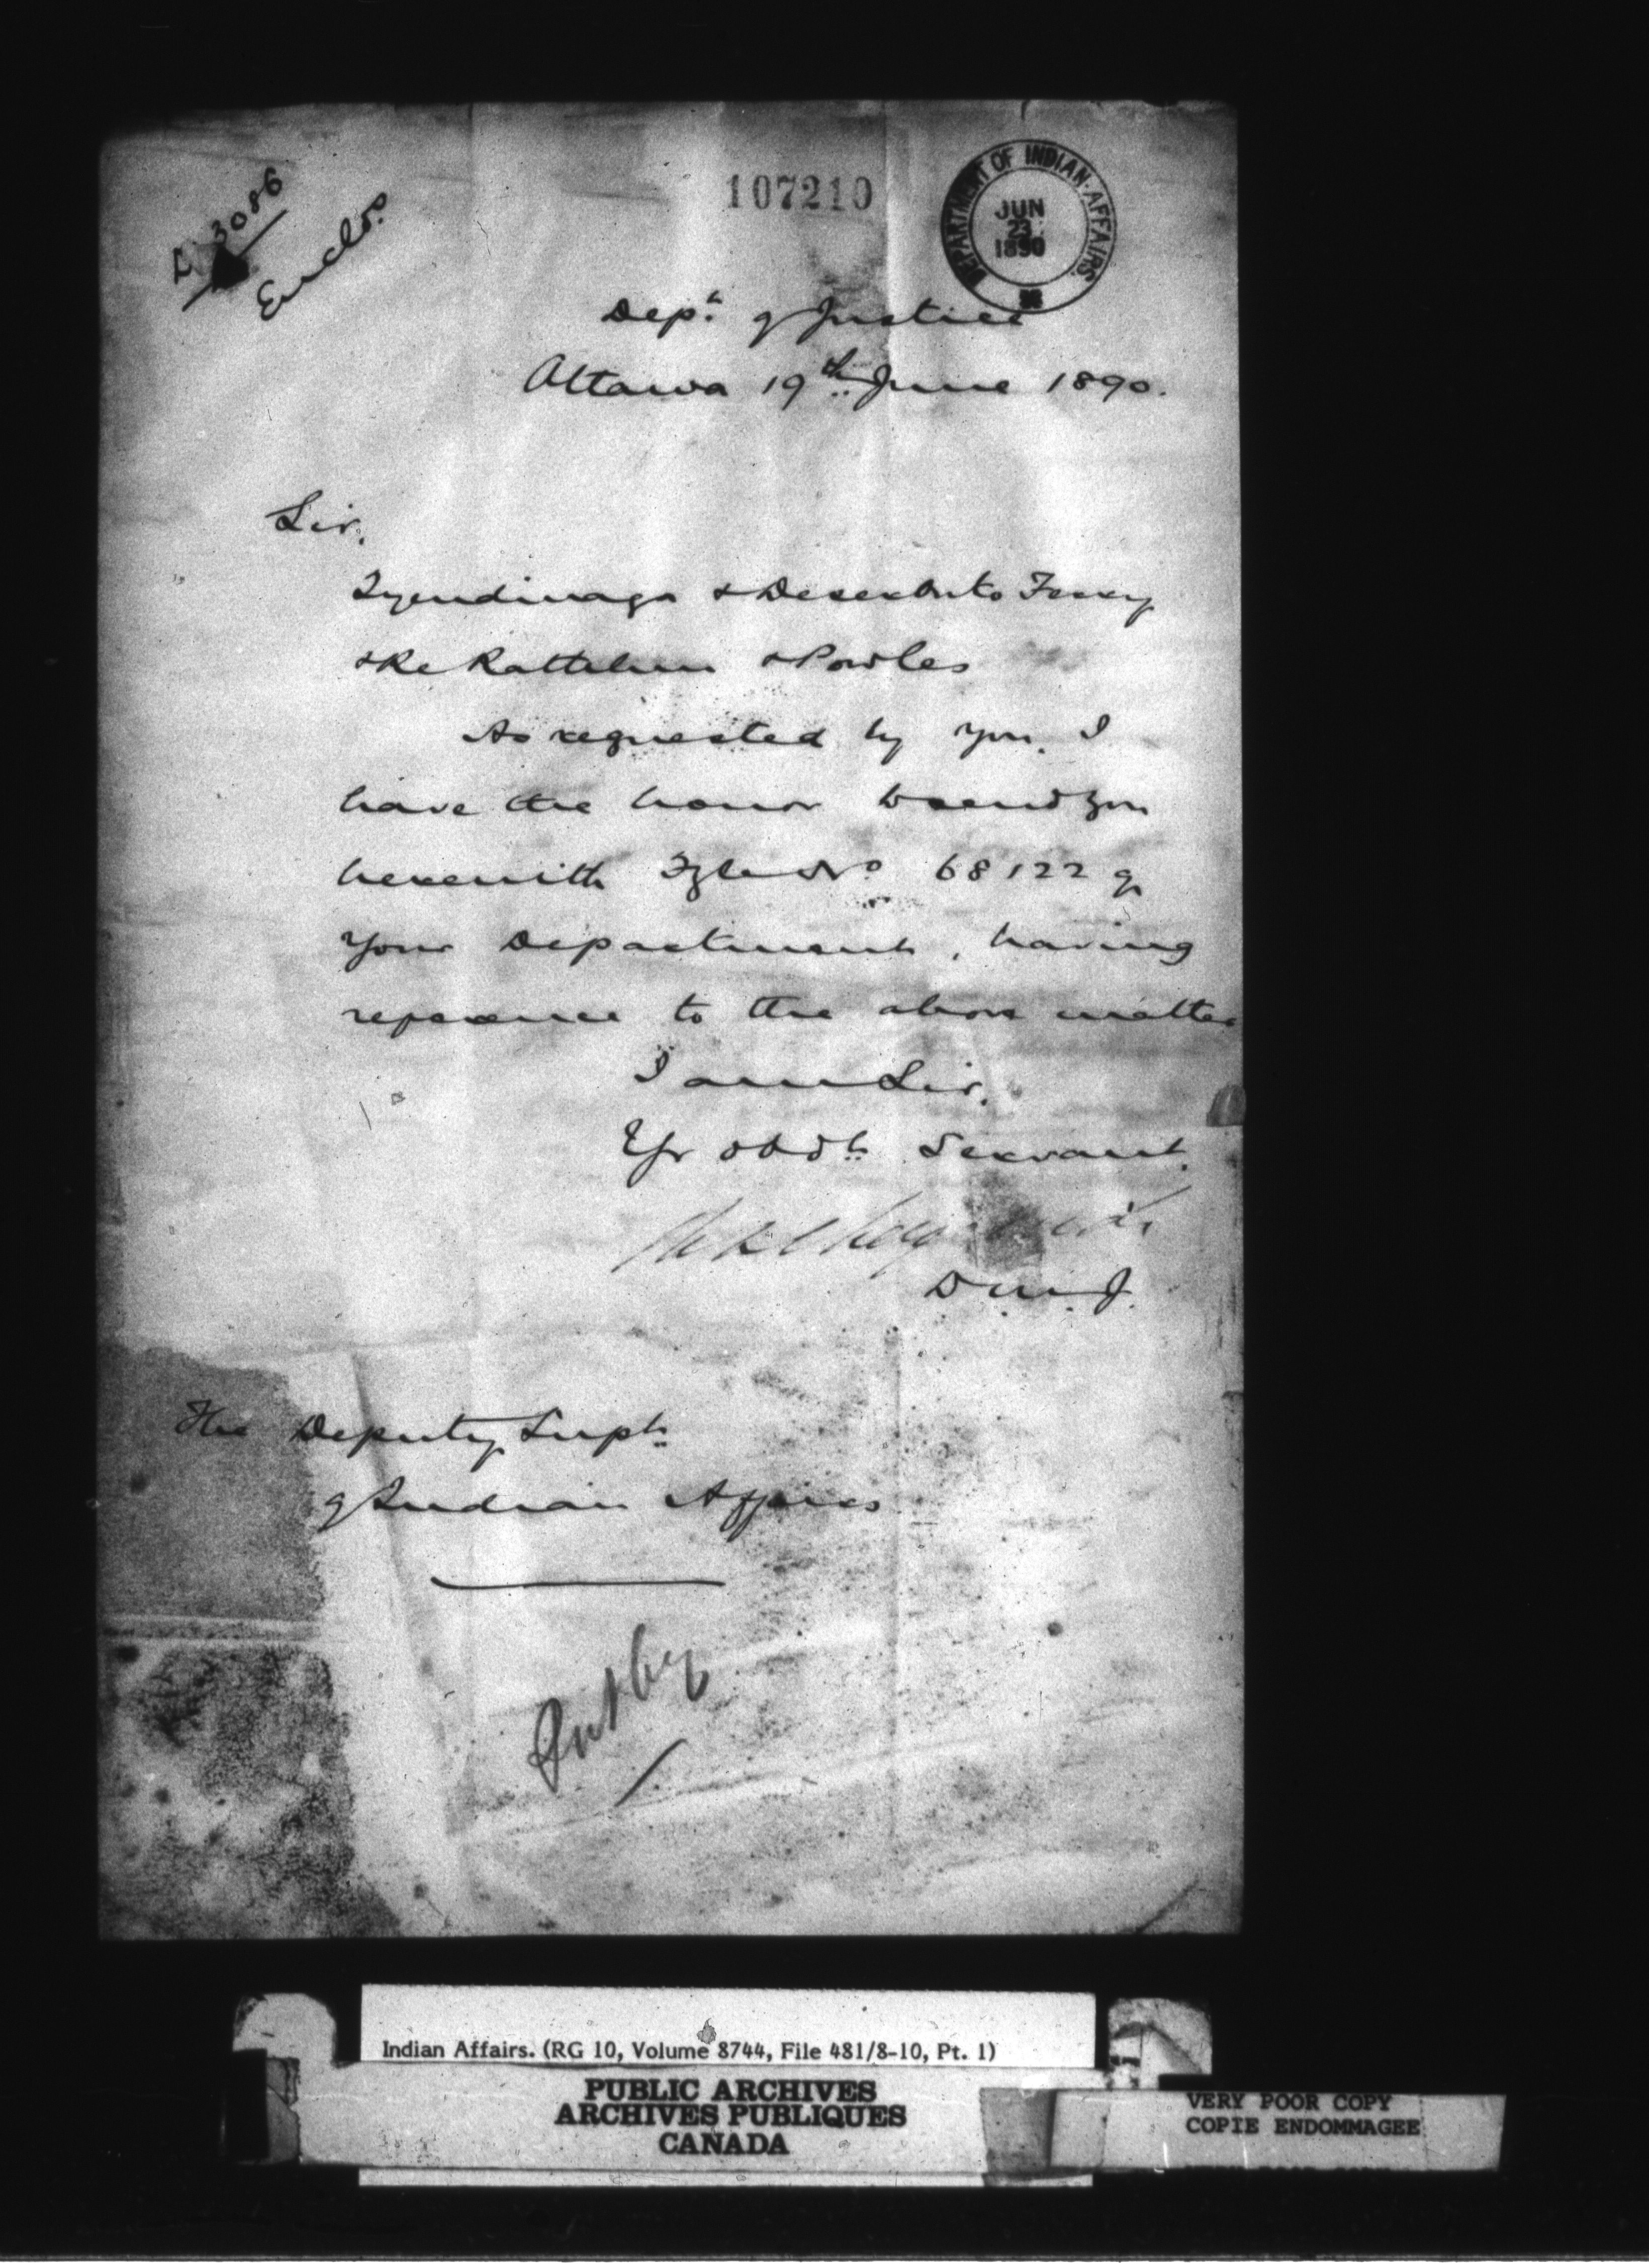 3086
Enclo.
107210
DEPARTMENT OF INDIAN AFFAIRS.
JUN
23
1890
Dept. of Justice
Ottawa 19th June 1890.
Sir,
Tyendinaga & Deseronto Ferry
& Re & Powles
As requested by you, I
have the honor to send you
herewith Fyle No 68122 of
your Department, having
reference to the above matter
I am Sir,
Yr obdt Servant
D.M.J.
The Deputy Supt.
of Indian Affairs
Indian Affairs. (RG 10, Volume 8744, File 481/8-10, Pt. 1)
PUBLIC ARCHIVES
ARCHIVES PUBLIQUES
CANADA
VERY POOR COPY
COPIE ENDOMMAGEE